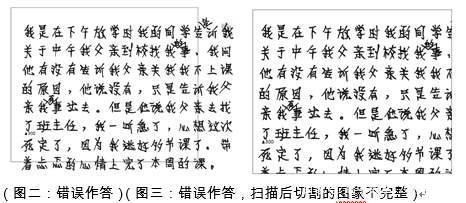 我是在下午放学时我的同学告诉我
关于中午我父亲到校找我事,我问
他有没有告诉我父亲关于我不上课
的原因,他说没有,只是告诉我父
亲我事出去。但是他说我父亲去找
了班主任,我一听急了,心想这次
死定了,因为我逃好几节课了。带
着忐忑的心情上完了本周的课。
我是在下午放学时我的同
关于中午我父亲到校找我事,
他有没有告诉我父亲关我我
的原因,他说没有,只是告诉
亲我事出去。但是他说我父
了班主任,我一听急了,心想
死定了,因为我逃好几节课
着忐忑的心情上完了本周的
(图二:错误作答)(图三:错误作答,扫描后切割的图象不完整)